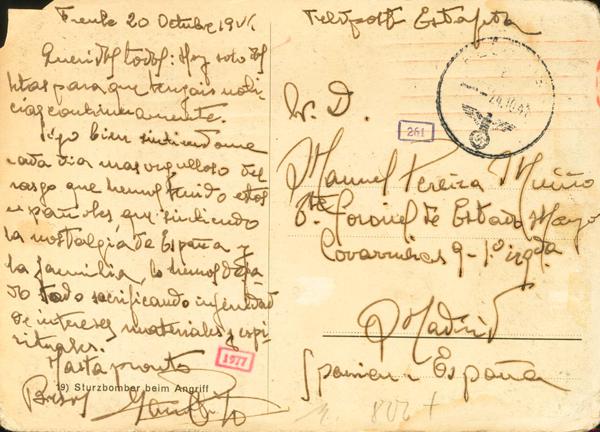 Frente 20 Octubre 1941
Queridos todos: Hoy solo dos
letras para que tengais noti-
cias continuamente.
Sigo bien sintiendome
cada dia mas orgulloso del
rasgo que hemos tenido estos
españoles que sintiendo
la nostalgia de España y
la familia, lo hemos deja-
do todo sacrificando infinidad
de intereses materiales y espi-
rituales.
Hasta pronto
Besos
19) Sturzbomber beim Angriff
1977
Feldpost Estafeta
24.10.41
261
Sr. D.
Manuel Pereira Muiño
Coronel de Estado Mayor
Covarrubias 9 - 1º izqda
Madrid
Spanien - España